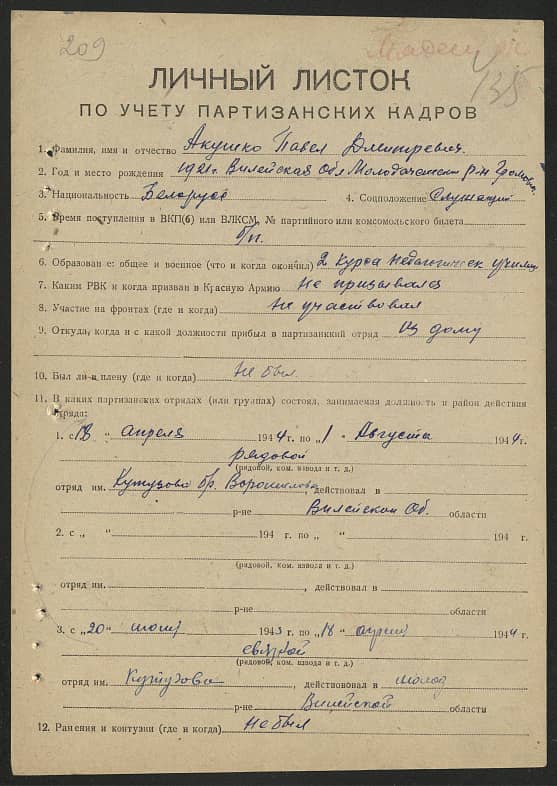 209
135
ЛИЧНЫЙ ЛИСТОК
ПО УЧЕТУ ПАРТИЗАНСКИХ КАДРОВ
1. Фамилия, имя и отчество Акушко Павел Дмитревич.
2. Год и место рождения 1921г. Вилейская Обл Молодеченский р-н
3. Национальность Беларус 4. Соцположение Служащий
5. Время поступления в ВКП(б) или ВЛКСМ, № партийного или комсомольского билета
б/п.
6. Образование: общее и военное (что и когда окончил) 2 курса педагогическ училищ
7. Каким РВК и когда призван в Красную Армию Не призывался
8. Участие на фронтах (где и когда) Не участвовал
9. Откуда, когда и с какой должности прибыл в партизанский отряд Из дому
10. Был ли в плену (где и когда) Не был
11. В каких партизанских отрядах (или группах) состоял, занимаемая должность и район действия
отряда:
1. с „18 “ апреля 1944 г. по „1 “ Августа 1944 г.
рядовой
(рядовой, ком. взвода и т. д.)
отряд им. Кутузова бр. Ворошилова, действовал в
р-не Вилейской Об. области
2. с „ “ 194 г. по „ “ 194 г.
(рядовой, ком. взвода и т. д.)
отряд им. , действовал в
р-не области
3. с „20“ 1943 г. по „18“ 1944 г.
связной
(рядовой, ком. взвода и т. д.)
отряд им. Кутузова , действовал в молод
р-не Вилейской области
12. Ранения и контузии (где и когда) Не был